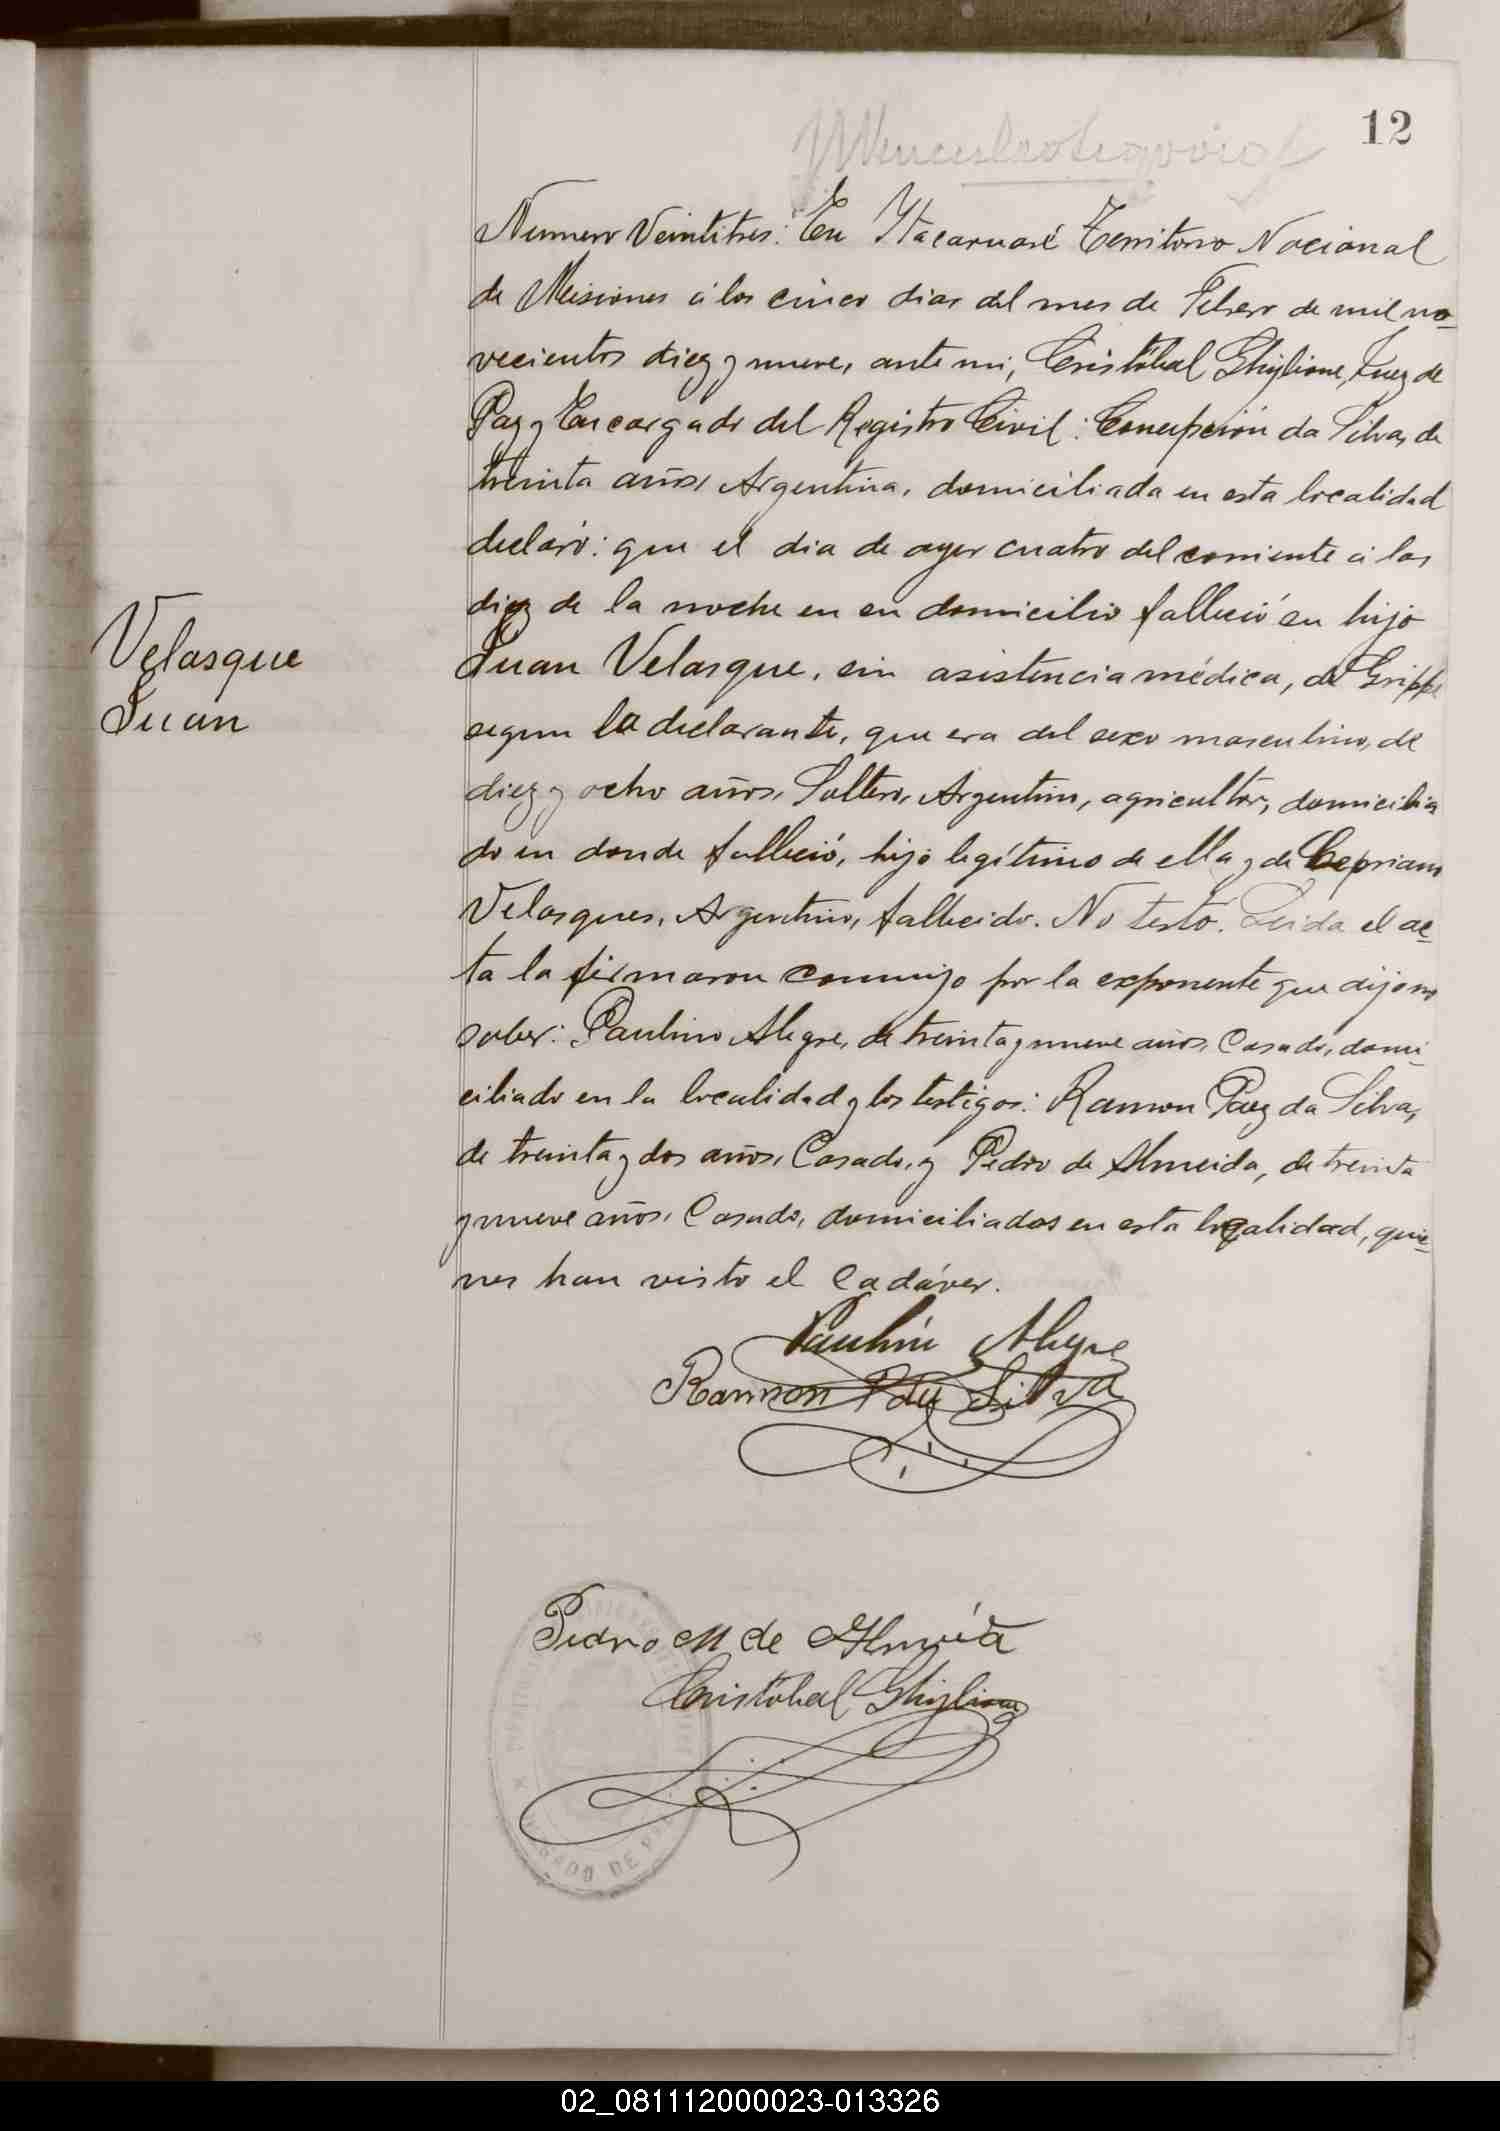 12
Numero Veintitres: En Itacaruaré Territorio Nacional
de Misiones á los cinco dias del mes de Febrero de mil no-
vecientos diez y nueve, ante mi, Cristóbal Ghiglione, Juez de
Paz y Encargado del Registro Civil: Concepción da Silva, de
treinta años, Argentina, domiciliada en esta localidad
declaró: que el dia de ayer cuatro del corriente á las
diez de la noche en su domicilio falleció su hijo
Juan Velasque, sin asistencia médica, de Grippe
segun la declarante, que era del sexo masculino, de
diez y ocho años, Soltero, Argentino, agricultor, domicilia
do en donde falleció, hijo legítimo de ella y de Cepriano
Velasques, Argentino, fallecido. No testó. Leida el ac-
ta la firmaron conmigo por la exponente que dijo no
saber: Paulino Alegre, de treinta y nueve años, Casado, domi-
ciliado en la localidad y los testigos: Ramon Paez da Silva,
de treinta y dos años, Casado, y Pedro de Almeida, de treinta
y nueve años, Casado, domiciliados en esta localidad, quie-
nes han visto el Cadáver.
Velasque
Juan
Paulino Alegre
Ramon P da Silva
Pedro M de Almeida
Cristóbal Ghiglione
JUZGADO DE PAZ
02_081112000023-013326